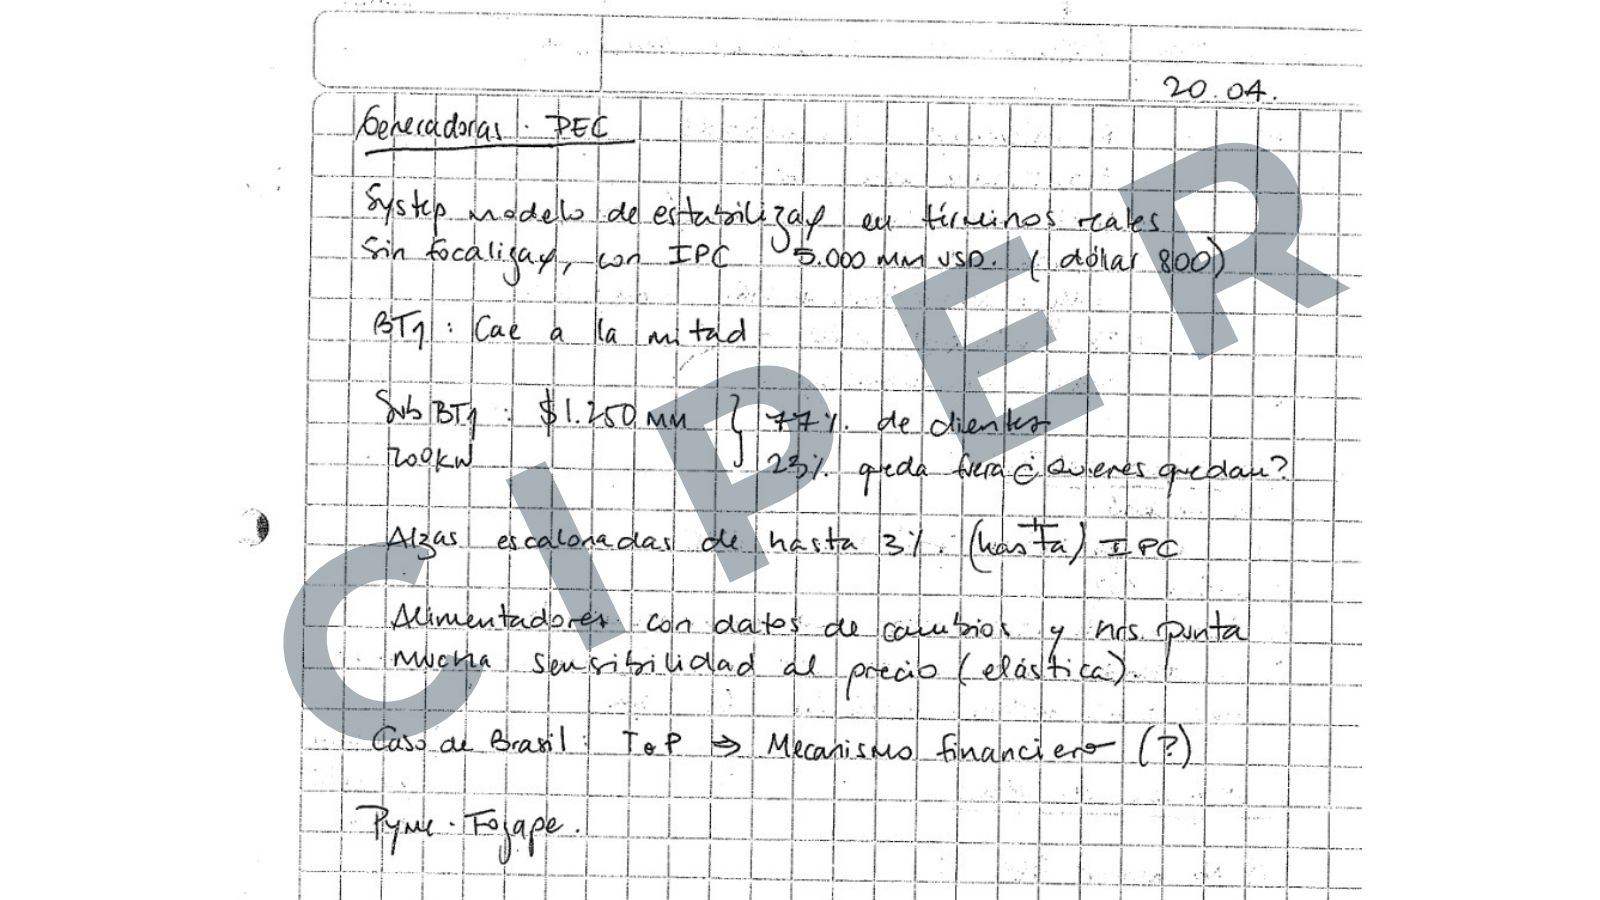 20.04.
Generadoras. PEC
Systep modelo de estabilizaz en términos reales
Sin focalizaz, con IPC 5.000 MM USD. (dólar 800)
BT1: Cae a la mitad
Sub BT1: $1.250 MM } 77% de clientes
200KW 23% queda fuera ¿Quienes quedan?
Alzas escalonadas de hasta 3% (hasta) IPC
Alimentadores con datos de cambios y hrs. punta
Mucha sensibilidad al precio (elástica).
Caso de Brasil: ToP ⇒ Mecanismo financiero (?)
Pyme. Fogape.
CIPER